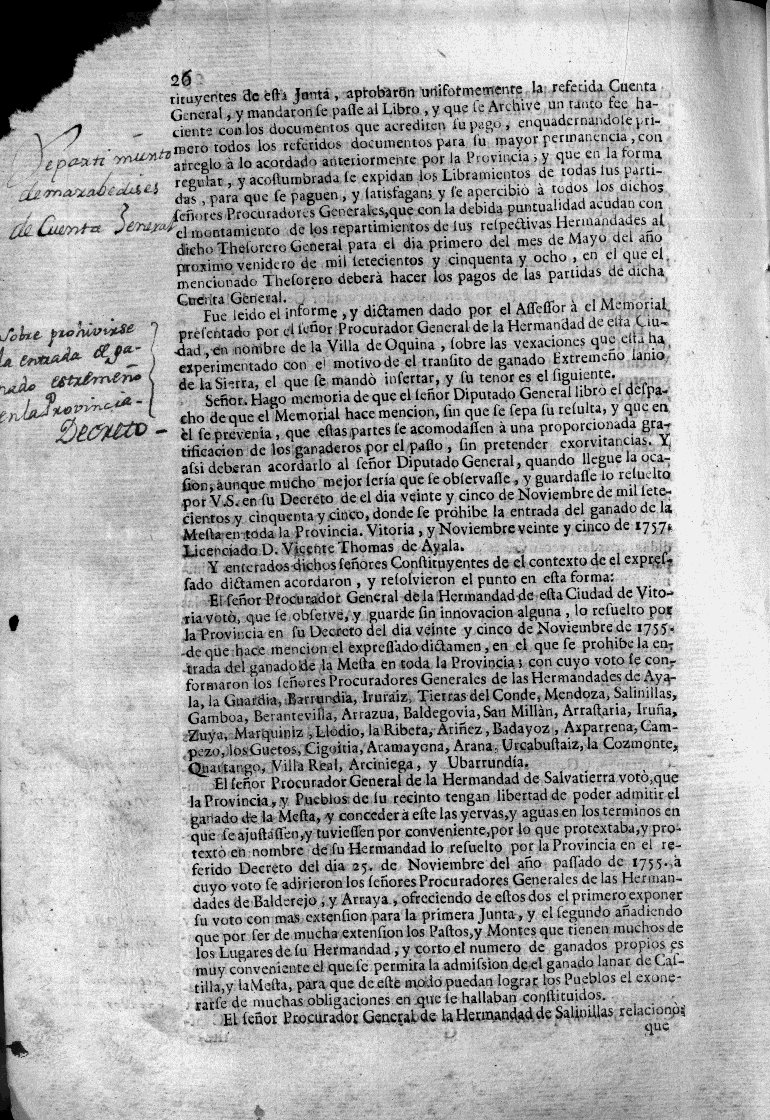 26
tituyentes de esta Junta, aprobaron uniformemente la referida Cuenta
General, y mandaron se passe al Libro, y que se Archive un tanto fee ha-
ciente con los documentos que acrediten su pago, enquadernandose pri-
mero todos los referidos documentos para su mayor permanencia, con
arreglo à lo acordado anteriormente por la Provincia; y que en la forma
regular, y acostumbrada se expidan los Libramientos de todas sus parti-
das, para que se paguen, y satisfagan; y se apercibiò à todos los dichos
señores Procuradores Generales, que con la debida puntualidad acudan con
el montamiento de los repartimientos de sus respectivas Hermandades al
dicho Thesorero General para el dia primero del mes de Mayo del año
proximo venidero de mil setecientos y cinquenta y ocho, en el que el
mencionado Thesorero deberà hacer los pagos de las partidas de dicha
Cuenta General.
Repartimiento
de marabedises
de Cuenta General
Fue leido el informe, y dictamen dado por el Assessor à el Memorial
presentado por el señor Procurador General de la Hermandad de esta Ciu-
dad, en nombre de la Villa de Oquina, sobre las vexaciones que esta ha
experimentado con el motivo de el transito de ganado Extremeño lanio
de la Sierra, el que se mandò insertar, y su tenor es el siguiente.
Sobre prohivirse
la entrada el ga-
nado estremeño
en la Provincia-
Decreto-
Señor. Hago memoria de que el señor Diputado General librò el despa-
cho de que el Memorial hace mencion, sin que se sepa su resulta, y que en
èl se prevenia, que estas partes se acomodassen à una proporcionada gra-
tificacion de los ganaderos por el pasto, sin pretender exorvitancias. Y
assi deberan acordarlo al señor Diputado General, quando llegue la oca-
sion, aunque mucho mejor seria que se observasse, y guardasse lo resuelto
por V.S. en su Decreto de el dia veinte y cinco de Noviembre de mil sete-
cientos y cinquenta y cinco, donde se prohibe la entrada del ganado de la
Mesta en toda la Provincia. Vitoria, y Noviembre veinte y cinco de 1757.
Licenciado D. Vicente Thomas de Ayala.
Y enterados dichos señores Constituyentes de el contexto de el expres-
sado dictamen acordaron, y resolvieron el punto en esta forma:
El señor Procurador General de la Hermandad de esta Ciudad de Vito-
ria votò, que se observe, y guarde sin innovacion alguna, lo resuelto por
la Provincia en su Decreto del dia veinte y cinco de Noviembre de 1755.
de que hace mencion el expressado dictamen, en el que se prohibe la en-
trada del ganado de la Mesta en toda la Provincia; con cuyo voto se con-
formaron los señores Procuradores Generales de las Hermandades de Aya-
la, la Guardia, Barrundia, Iruraiz, Tierras del Conde, Mendoza, Salinillas,
Gamboa, Berantevilla, Arrazua, Baldegovia, San Millàn, Arrastaria, Iruña,
Zuya, Marquiniz, Llodio, la Ribera, Ariñez, Badayoz, Axparrena, Cam-
pezo, los Guetos, Cigoitia, Aramayona, Arana, Urcabustaiz, la Cozmonte,
Quartango, Villa Real, Arciniega, y Ubarrundía.
El señor Procurador General de la Hermandad de Salvatierra votò, que
la Provincia, y Pueblos de su recinto tengan libertad de poder admitir el
ganado de la Mesta, y conceder à este las yervas, y aguas en los terminos en
que se ajustassen, y tuviessen por conveniente, por lo que protextaba, y pro-
textò en nombre de su Hermandad lo resuelto por la Provincia en el re-
ferido Decreto del dia 25. de Noviembre del año passado de 1755. à
cuyo voto se adirieron los señores Procuradores Generales de las Herman-
dades de Balderejo, y Arraya, ofreciendo de estos dos el primero exponer
su voto con mas extension para la primera Junta, y el segundo añadiendo
que por ser de mucha extension los Pastos, y Montes que tienen muchos de
los Lugares de su Hermandad, y corto el numero de ganados propios es
muy conveniente el que se permita la admission de el ganado lanar de Cas-
tilla, y la Mesta, para que de este modo puedan lograr los Pueblos el exone-
rarse de muchas obligaciones en que se hallaban constituidos.
El señor Procurador General de la Hermandad de Salinillas relacionò:
que